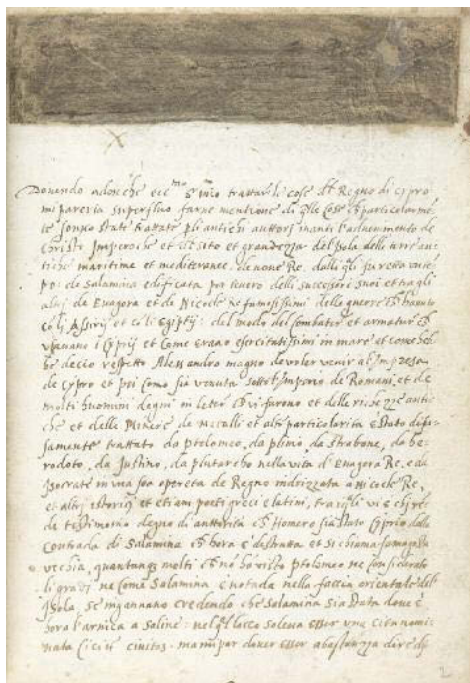 Douendo adonche ecc.mo S.r mio trattar le cose del Regno di Cypro
mi pareria superfluo farne mentione di q̃lle cose ch̃ particularmẽ
te sonno state trattate p̃ li antichi auttori inanti l'aduenimento de
christo Imperoche et de sito et grandezza del Isola delle terre an
tiche maritime et mediteranee, de noue Re, dalli q̃li fu retta un tẽ
po: de Salamina edificata pa teucro delli successori suoi et tra gli
altri de Euagora et de Nicocle ne famosissimi delle guerre ch̃ hauuto
cõ li Assirij et cõ li Egiptij: del modo del combater et armature ch̃
usauano i Cyprij et come erano esercitatissimi in mare et come heb
be decio respetto Alessandro magno de voler venir al Impresa
de Cypro et poi como sia venuta sotto l'Imperio de Romani, et de
molti huomini degni in letere ch̃ vi furono et delle richezze antic
he et delle Minere de mettalli et altre particolarita e stato difu
samente trattato da ptolomeo, da plinio, da strabone, da he
rodoto, da Justino, da plutarcho nella vita d'Euagora Re, e da
Isocrate in una sua opereta de Regno indrizzata a Nicocle Re,
et altri istorici et etiam poeti greci e latini, tra i q̃li vi e chi rẽ
de testimonio degno di auttorita ch̃ Homero sia stato Cyprio dalla
Contrada di Salamina ch̃ hora e destrutta et si chiama famagosta
vechia, quantunq̃ molti ch̃ nõ ha visto ptolomeo ne considerato
li gradi ne coma Salamina e notada nella faccia orientale dell'
Isola, se inganano credendo che Salamina sia stata doue e
hora l'arnica a saline: nel q̃l loco soleua esser una cita nomi
nata Citium civitas. ma mi par douer esser abastanza dire di